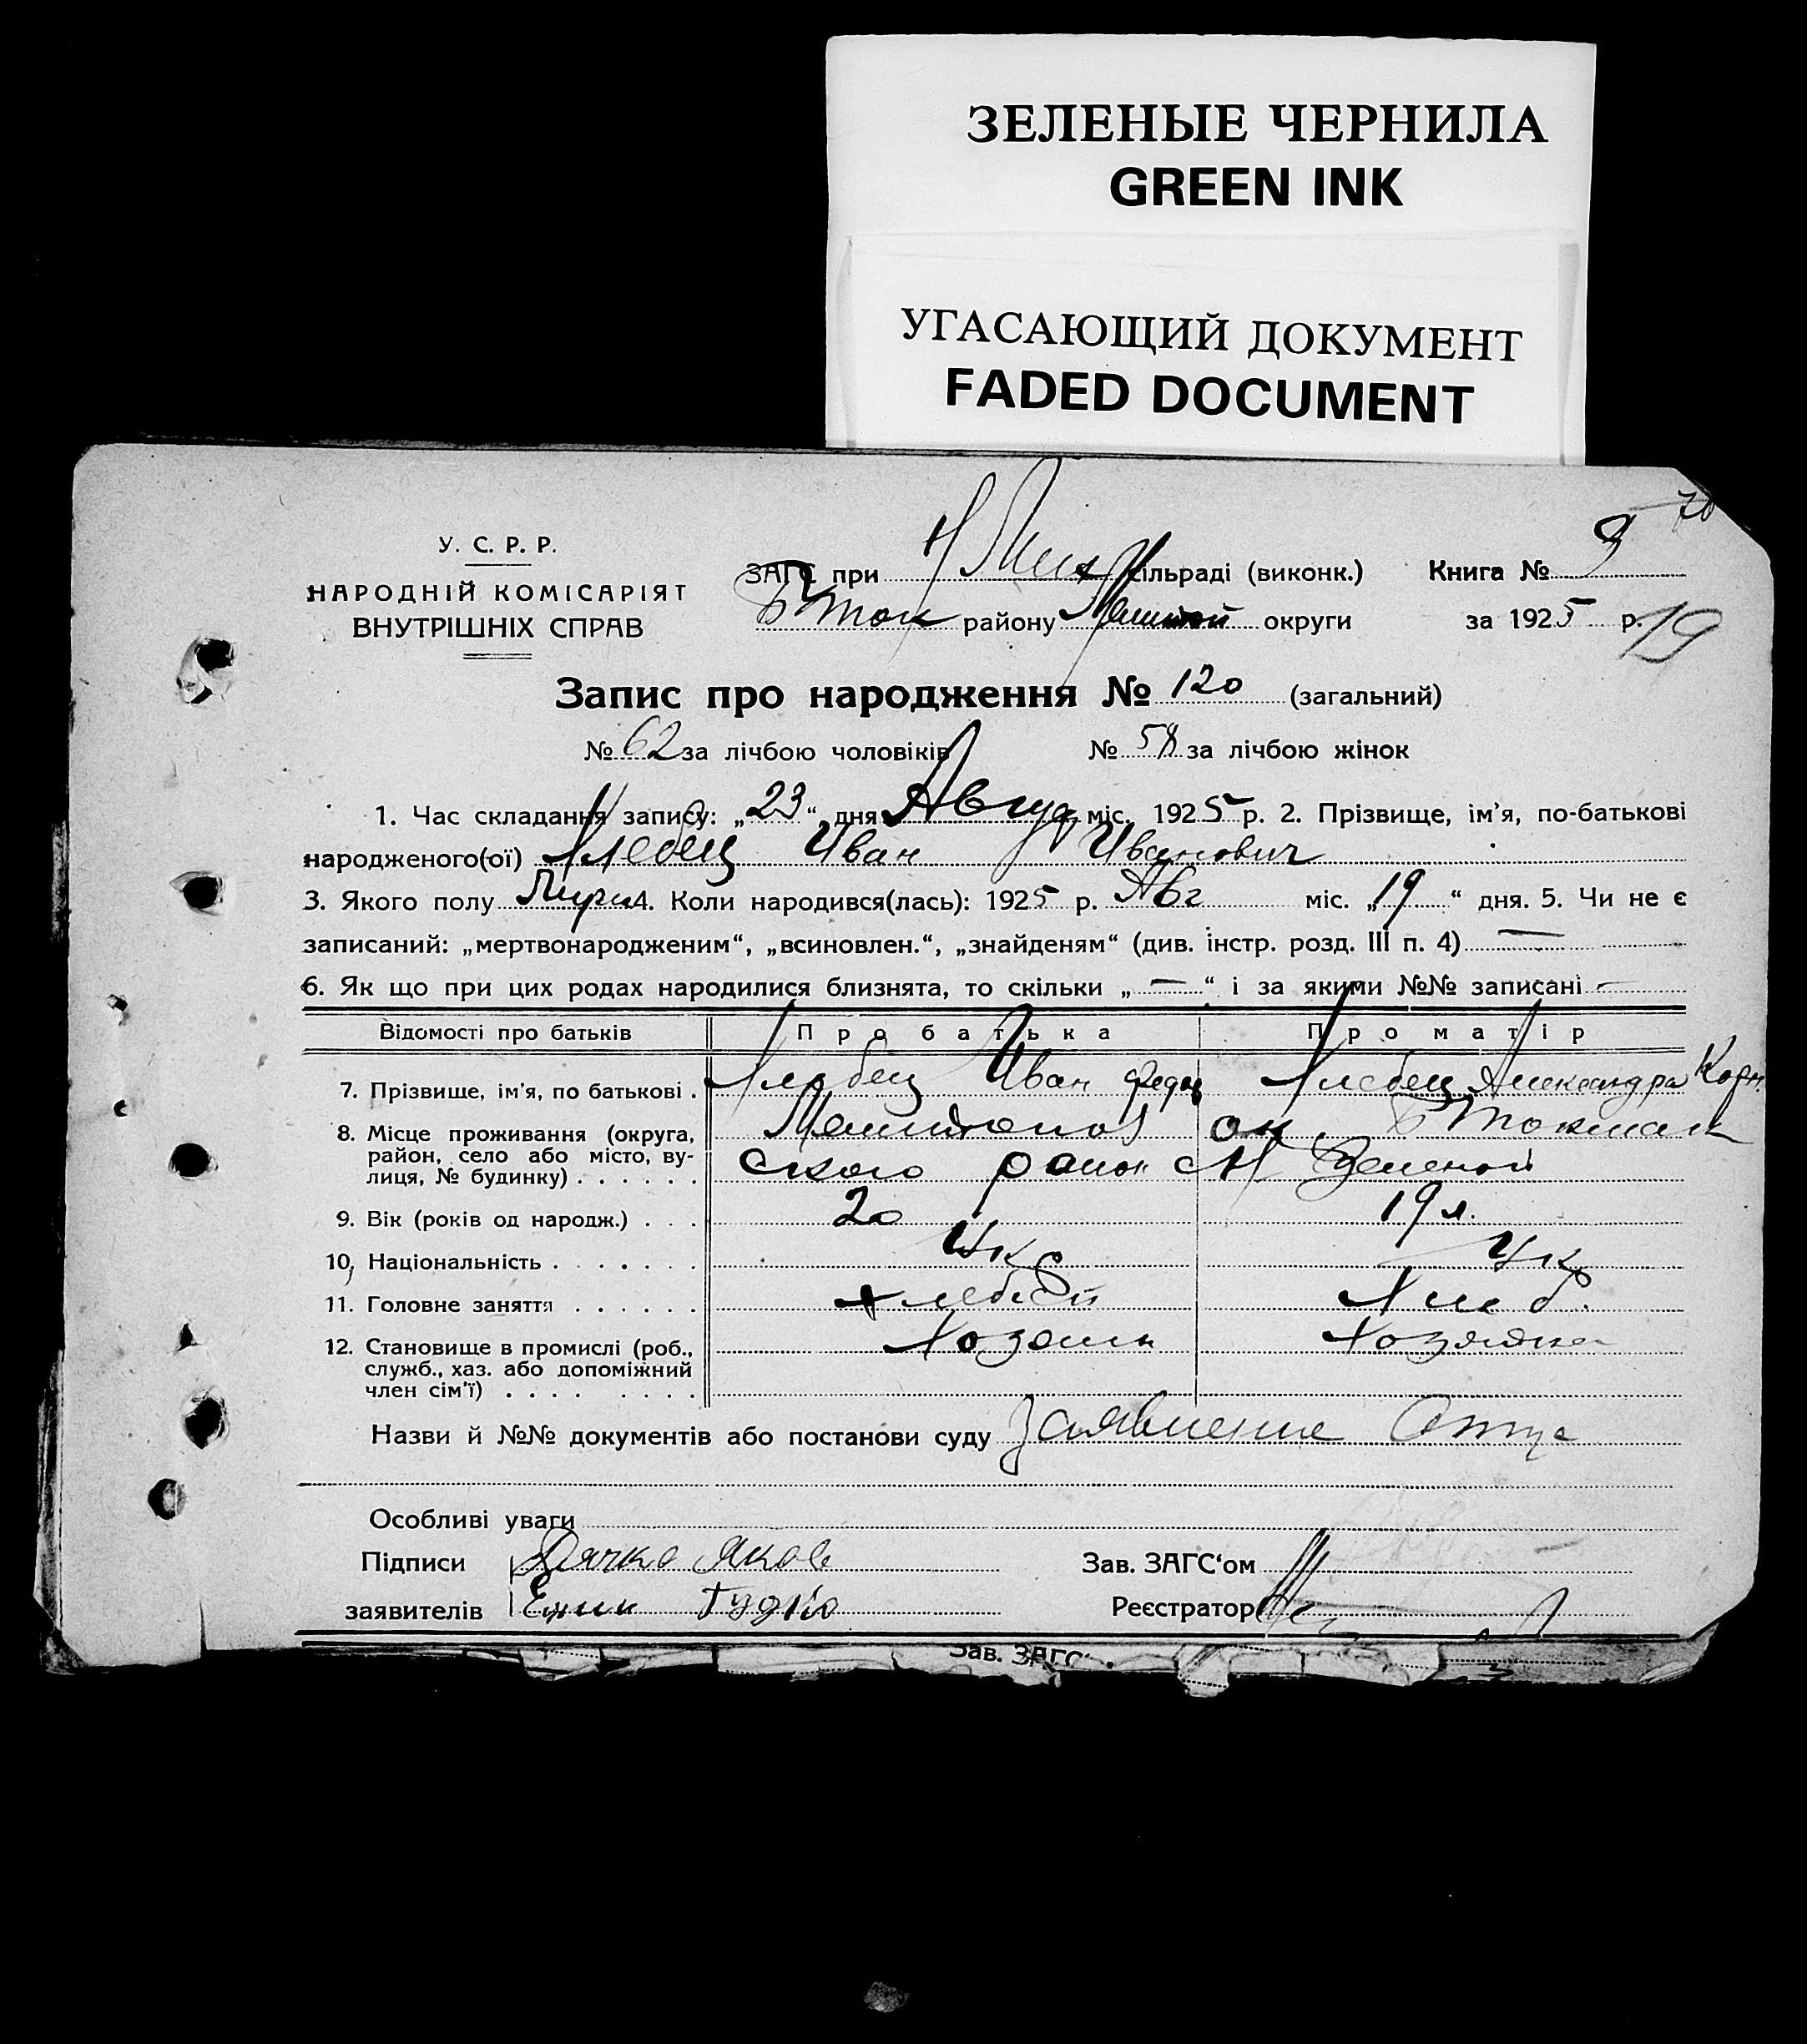 ЗЕЛЕНЫЕ ЧЕРНИЛА
GREEN INK
УГАСАЮЩИЙ ДОКУМЕНТ
FADED DOCUMENT
70
У. С. Р. Р.
НАРОДНІЙ КОМІСАРІЯТ
ВНУТРІШНІХ СПРАВ
ЗАГС при Н сільраді (виконк.) Книга №
Б Ток району округи за 1925 р. 19
Запис про народження № 120 (загальний)
№ 62 за лічбою чоловіків № 58 за лічбою жінок
1. Час складання запису: „23“ дня Август міс. 1925 р. 2. Прізвище, ім'я, по-батькові
народженого(ої) Хлебец Иван Иванович
3. Якого полу 4. Коли народився(лась): 1925 р. Авг міс. „19“ дня. 5. Чи не є
записаний: „мертвонародженим“, „всиновлен.“, „знайденям“ (див. інстр. розд. III п. 4) —
6. Як що при цих родах народилися близнята, то скільки „—“ і за якими №№ записані —
Відомості про батьків Про батька Про матір
7. Прізвище, ім'я, по батькові . Хлебец Иван Федор Хлебец Александра Корн.
8. Місце проживання (округа, Мелитопол ок Б Токмак
район, село або місто, ву- ского район с Н Зеленой
лиця, № будинку) . . . . . .
9. Вік (років од народж.) . . . 20 19 л.
10, Національність . . . . . . . Укр Укр
11. Головне заняття . . . . . . хлебоп Хлеб.
12. Становище в промислі (роб., Хозяин Хозяйка
служб., хаз. або допоміжний
член сім'ї) . . . . . . . .
Назви й №№ документів або постанови суду Заявление Отца
Особливі уваги
Підписи Дячко Яков Зав. ЗАГС'ом
заявителів Гудко Реєстратор
Зав. ЗАГС